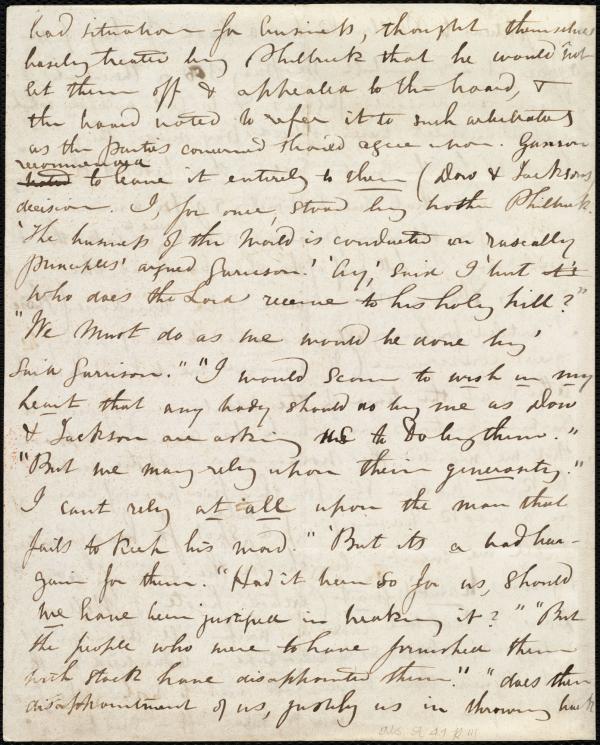 bad situation for business, thought themselves
basely treated by Philbrick that he would not
let them off & appealed to the board, &
the board voted to refer it to such arbitrators
as the parties concerned should agree upon. Garrison
recommended
voted to leave it entirely to them (Dow & Jackson's
decision. I, for once, stood by brother Philbrick.
'The business of the world is conducted on rascally
principles' argued Garrison.' 'Ay,' said I 'but it's
who does the Lord receive to his holy hill?"
"We must do as we would be done by'
said Garrison." "I would scorn to wish in my
heart that any body should do by me as Dow
& Jackson are asking us to do by them."
"But we may rely upon their generosity."
I cant rely at all upon the man that
fails to keep his word." 'But its a bad bar-
gain for them. "Had it been so for us, should
we have been justified in breaking it?" "But
the people who were to have furnished them
with stock have disappointed them." "does their
disappointment of us, justify us in throwing back